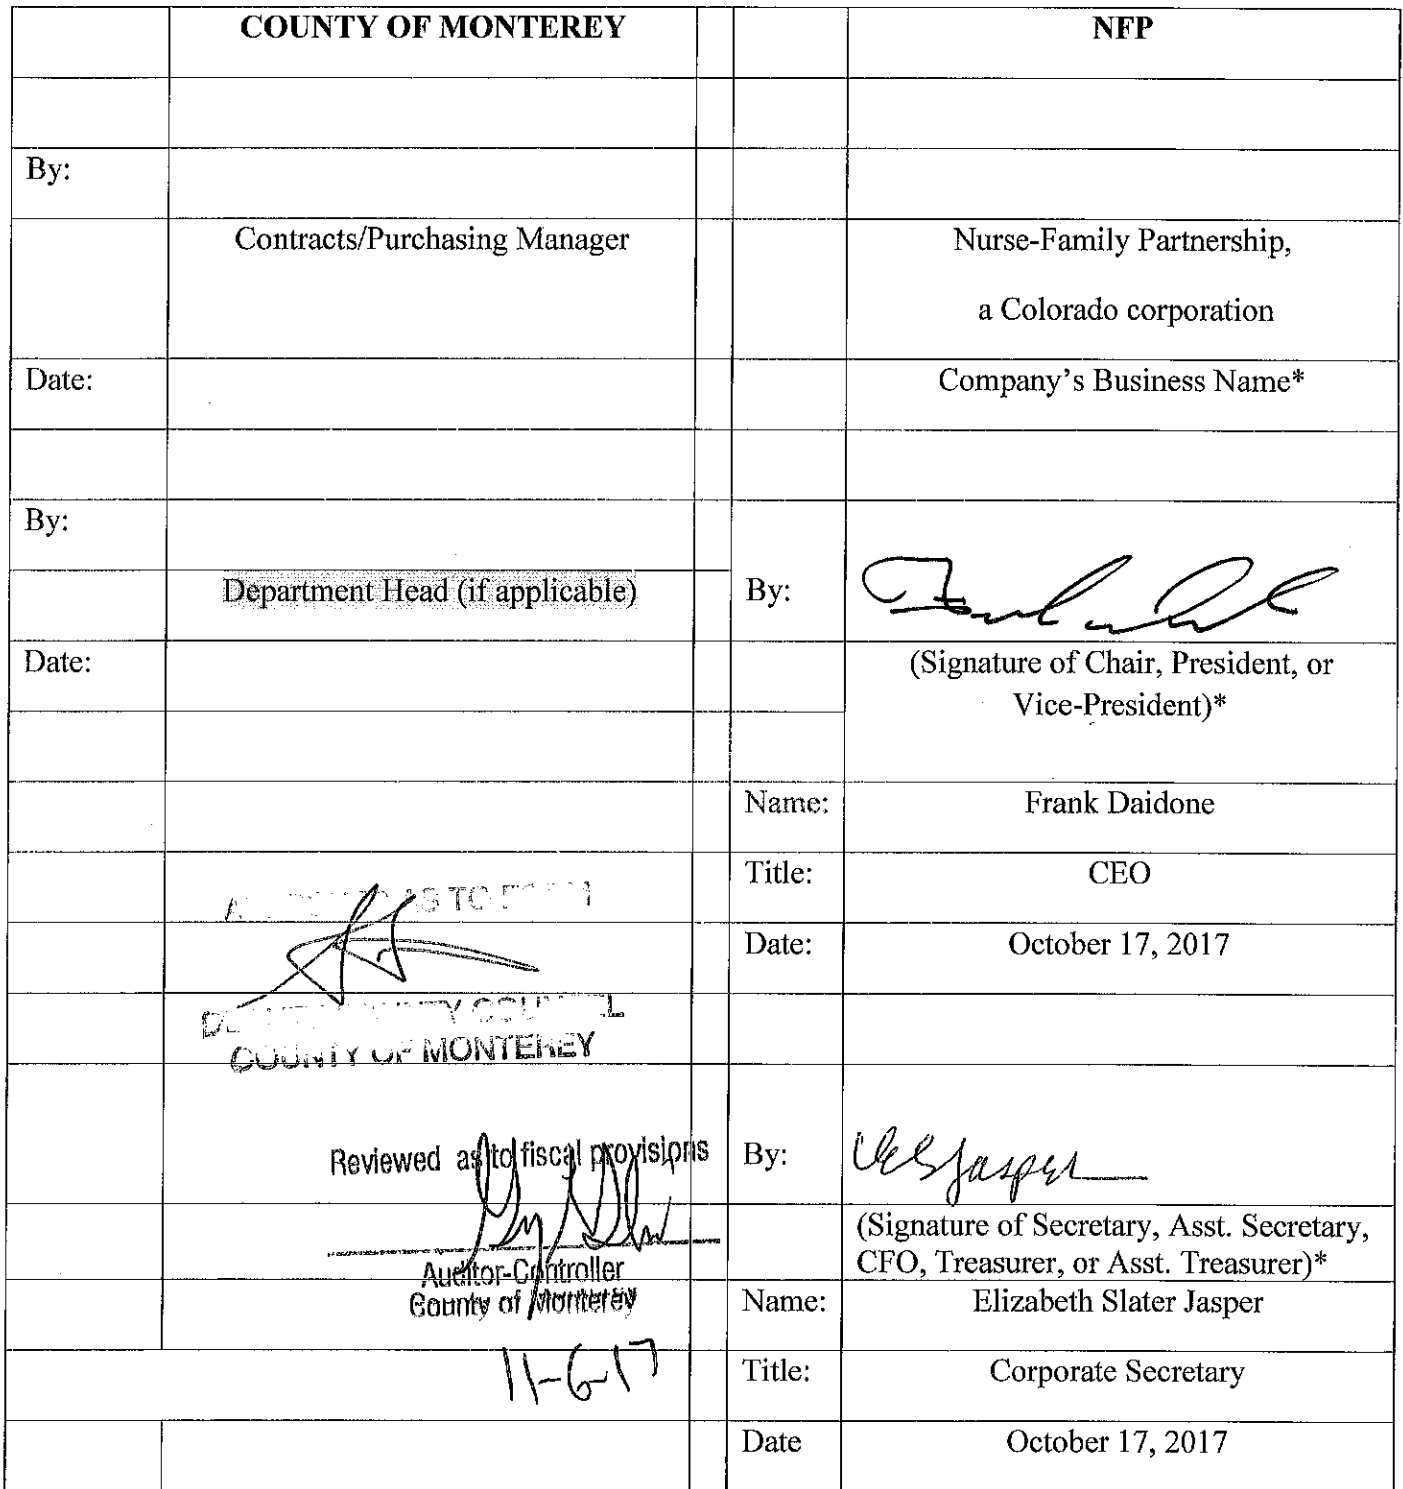 COUNTY OF MONTEREY
NFP
By:
Contracts/Purchasing Manager
Nurse-Family Partnership,
a Colorado corporation
Date:
Company's Business Name*
By:
Department Head (if applicable)
By:
Date:
(Signature of Chair, President, or
Vice-President)*
Name:
Frank Daidone
Title:
CEO
AS TO FORM
Date:
October 17, 2017
COUNTY OF MONTEREY
Reviewed as to fiscal provisions
By:
Jasper
(Signature of Secretary, Asst. Secretary,
CFO, Treasurer, or Asst. Treasurer)*
Auditor-Controller
County of Monterey
Name:
Elizabeth Slater Jasper
11-6-17
Title:
Corporate Secretary
Date
October 17, 2017